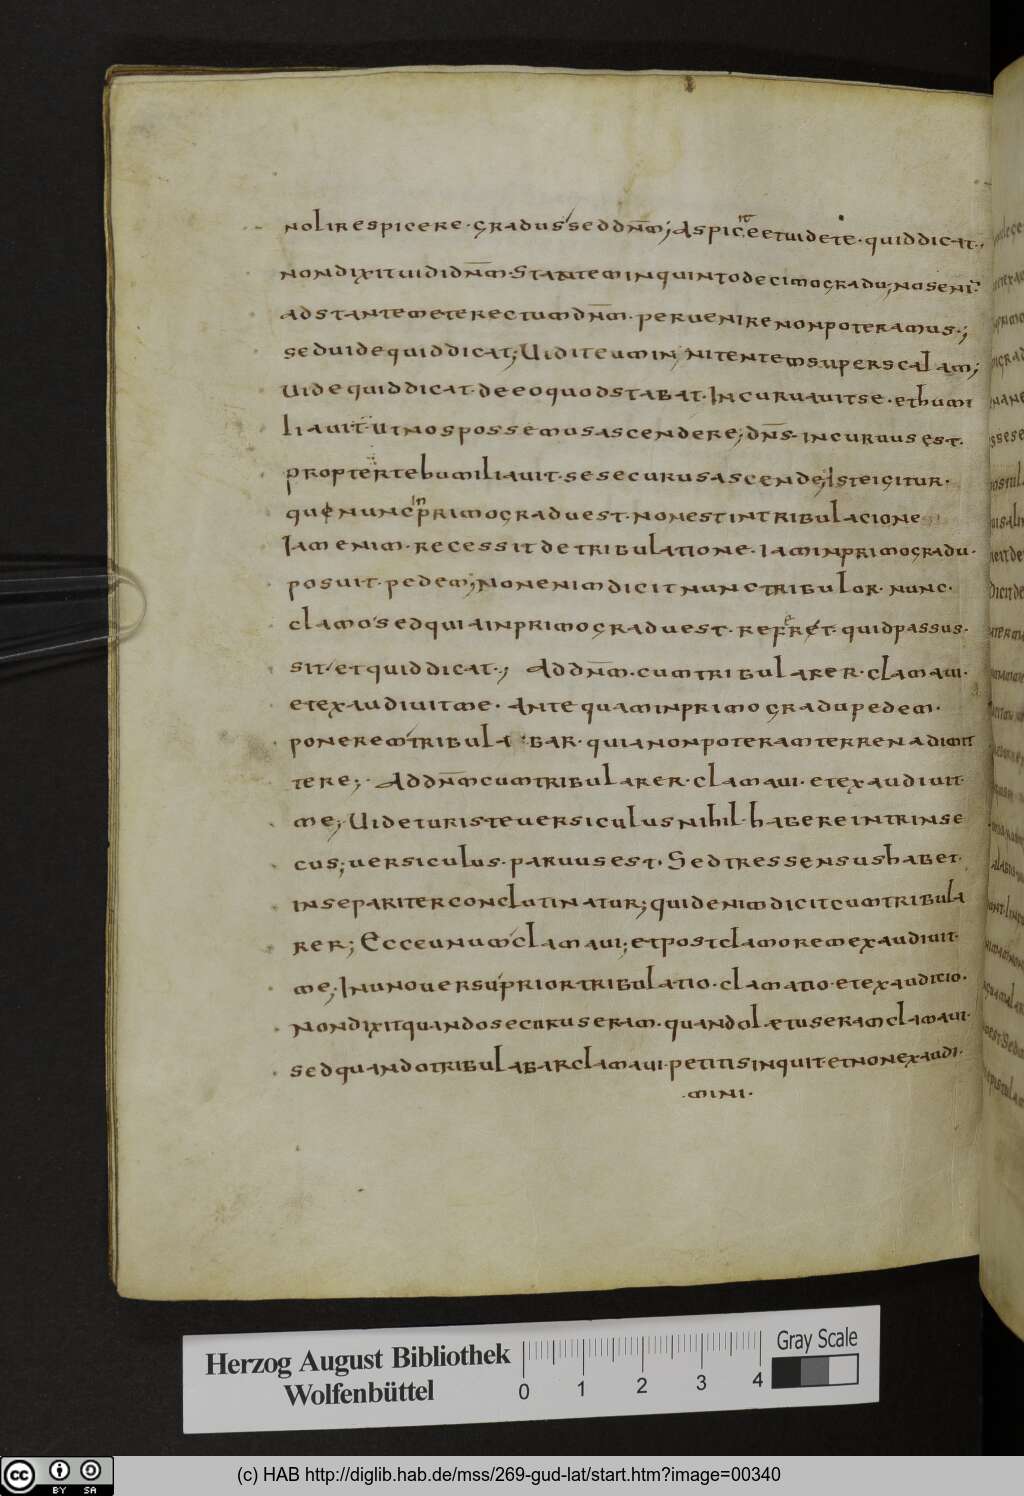 noli respicere · gradus sed dnm; Aspicite et uidete · quid dicat ·,
non dixit uidi dnm · stantem in quinto decimo gradu; nos eni
adstantem et erectum dnm · peruenire non poteramus ·;
sed uide quid dicat; Uidit eum innitentem super scalam;
uide quid dicat · de eo quod stabat · Incuruauit se · et humi
liauit · ut nos possemus ascendere; dns · incuruus est ·
propter te humiliauit · se securus ascende; Iste igitur ·
que nunc in primo gradu est · non est in tribulacione
Iam enim · recessit de tribulatione · iam in primo gradu ·
posuit · pedem; Non enim dicit nunc tribulor · nunc ·
clamo · sed quia in primo gradu est · refert · quid passus ·
sit · et quid dicat ·; Ad dnm · cum tribularer · clamaui ·
et exaudiuit me · Ante quam in primo gradu pedem ·
ponerem tribulabar · quia non poteram terrena dimit
tere; · Ad dnm cum tribularer · clamaui · et exaudiuit
me; Uidetur iste uersiculus nihil · habere intrinse
cus; uersiculus · paruus est · Sed tres sensus habet ·
in se pariter conclutinatur; quid enim dicit cum tribula
rer; Ecce unum clamaui; et post clamorem exaudiuit ·
me; In uno uersu prior tribulatio · clamatio · et exauditio ·
Non dixit quando securus eram · quando lætus eram clamaui ·
sed quando tribulabar clamaui · petitis inquit · et non exaudi ·
· mini ·
Herzog August Bibliothek
Wolfenbüttel
0 1 2 3 4
Gray Scale
cc BY SA
(c) HAB http://diglib.hab.de/mss/269-gud-lat/start.htm?image=00340